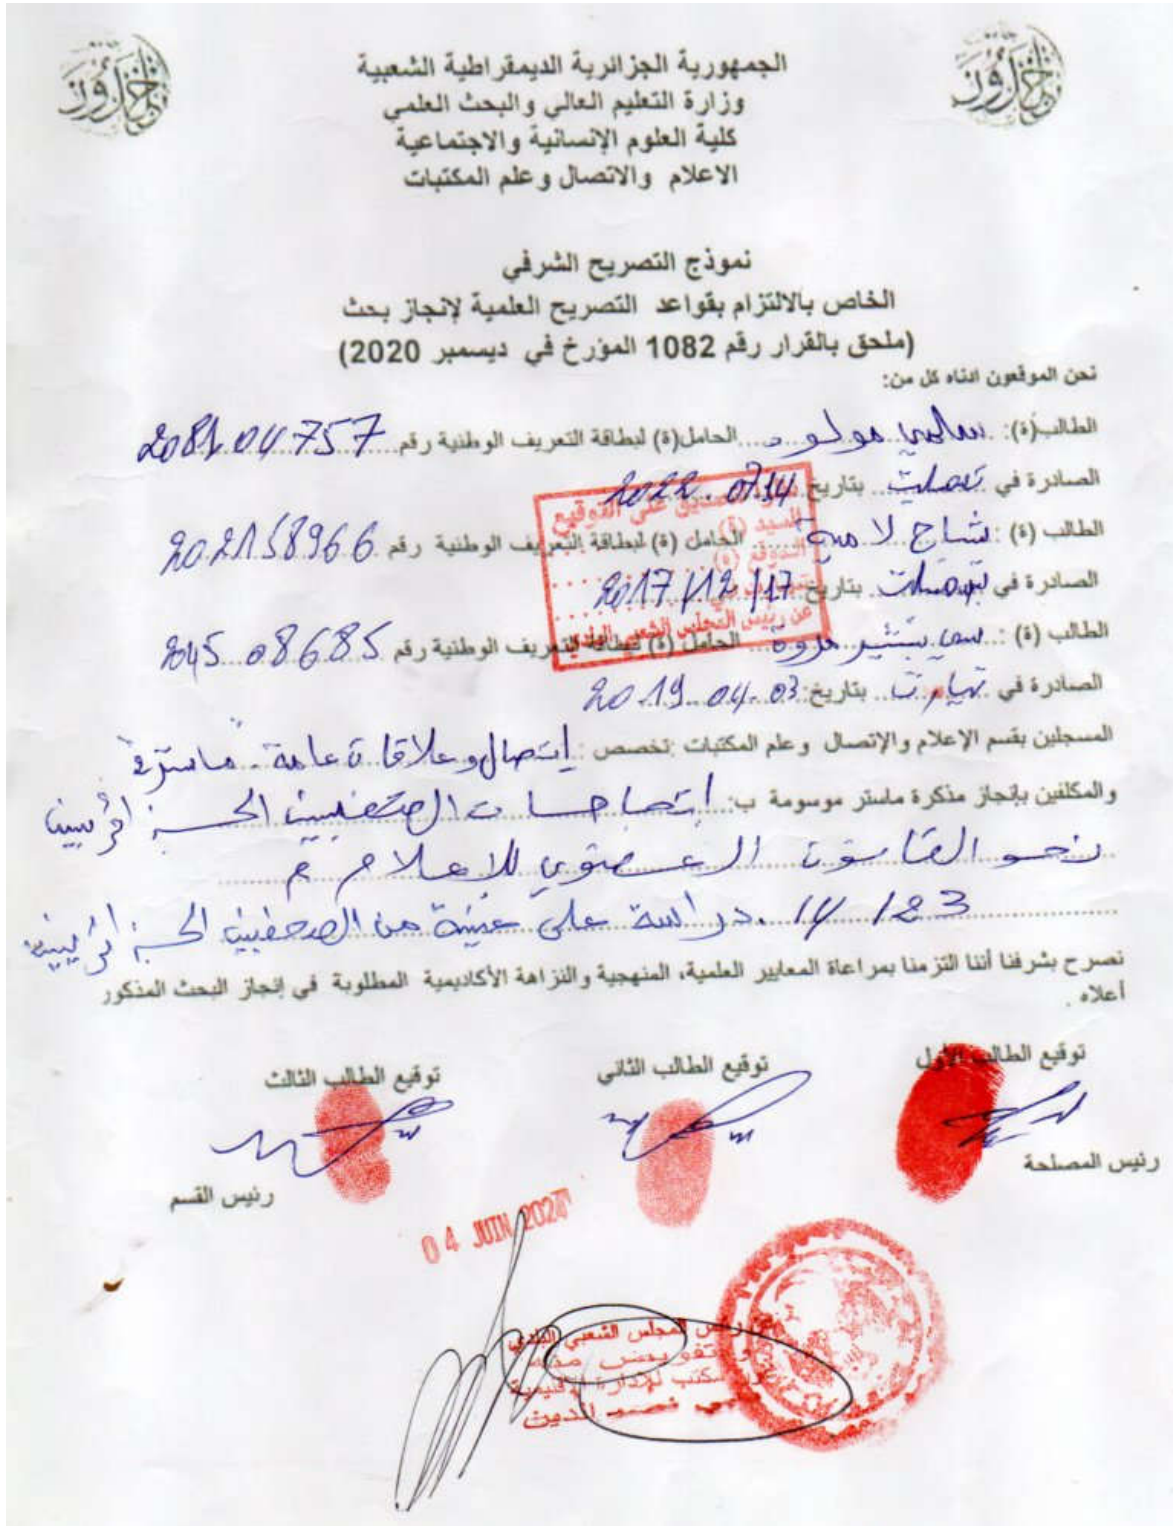 الجمهورية الجزائرية الديمقراطية الشعبية
وزارة التعليم العالي والبحث العلمي
كلية العلوم الإنسانية والاجتماعية
الاعلام والاتصال وعلم المكتبات
نموذج التصريح الشرفي
الخاص بالالتزام بقواعد التصريح العلمية لإنجاز بحث
(ملحق بالقرار رقم 1082 المؤرخ في ديسمبر 2020)
نحن الموقعون ادناه كل من:
الطالب(ة): سالمي مولود الحامل(ة) لبطاقة التعريف الوطنية رقم 208104757
الصادرة في بتاريخ 2022.07.14
الطالب (ة): شاح لامية الحامل (ة) لبطاقة التعريف الوطنية رقم 202158966
الصادرة في بتاريخ: 2017/12/17
الطالب (ة): سي بشير مروة الحامل (ة) لبطاقة التعريف الوطنية رقم 204508685
الصادرة في تيارت بتاريخ: 2019.04.03
المسجلين بقسم الإعلام والإتصال وعلم المكتبات تخصص: إتصال وعلاقات عامة - ماستر2
والمكلفين بإنجاز مذكرة ماستر موسومة ب: الصحفيين الجزائريين
نحو القانون العضوي للإعلام
14/23 دراسة على عينة من الصحفيين الجزائريين
نصرح بشرفنا أننا التزمنا بمراعاة المعايير العلمية، المنهجية والنزاهة الأكاديمية المطلوبة في إنجاز البحث المذكور
أعلاه.
توقيع الطالب الأول توقيع الطالب الثاني توقيع الطالب الثالث
رئيس المصلحة رئيس القسم
04 JUIN 2024